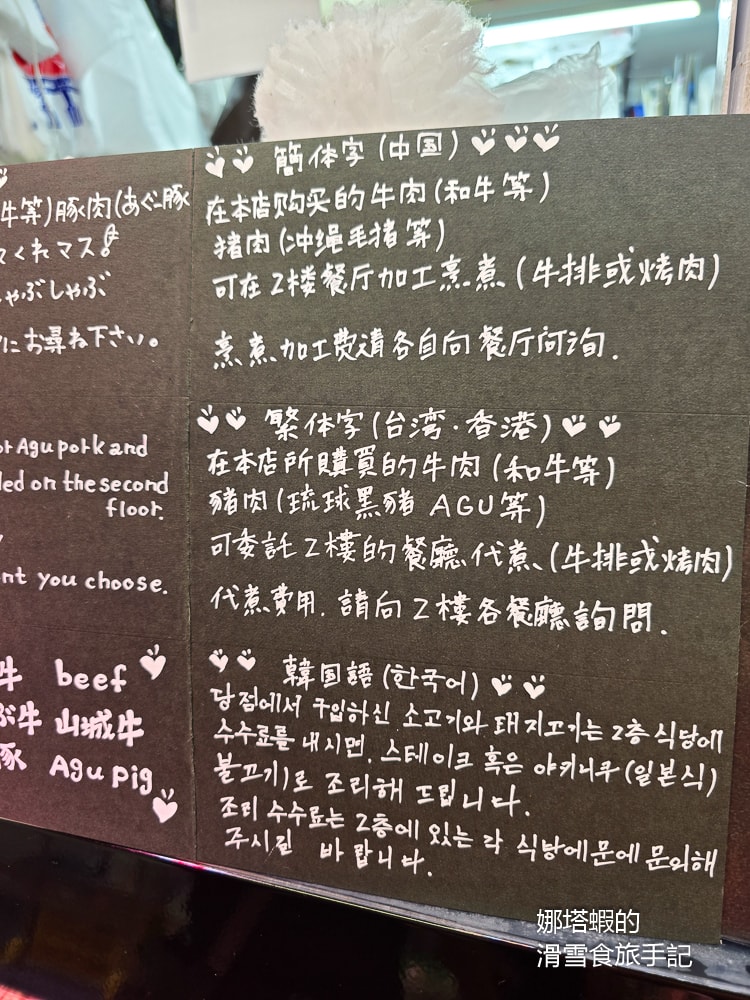 牛等)豚肉(あぐー豚
てくれマス
ゃぶしゃぶ
にお尋ね下さい。
or Agu pork and
ded on the second
floor.
nt you choose.
牛 beef
ぶ牛 山城牛
豚 Agu pig
簡体字(中国)
在本店购买的牛肉(和牛等)
猪肉(冲绳毛猪等)
可在2楼餐厅加工烹煮(牛排或烤肉)
烹煮加工费请各自向餐厅问询.
繁体字(台湾・香港)
在本店所購買的牛肉(和牛等)
豬肉(琉球黑豬 AGU等)
可委託2樓的餐廳代煮、(牛排或烤肉)
代煮費用.請向2樓各餐廳詢問.
韓国語(한국어)
당점에서 구입하신 소고기와 돼지고기는 2층 식당에
수수료를 내시면, 스테이크 혹은 야키니쿠(일본식)
불고기)로 조리해 드립니다.
조리 수수료는 2층에 있는 각 식당에문에 문의해
주시길 바랍니다.
娜塔蝦的
滑雪食旅手記